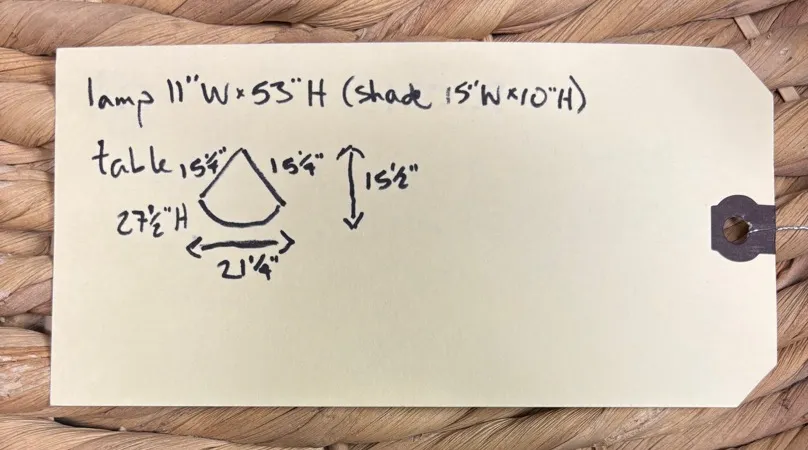 lamp 11"W x 53"H (shade 15"W x 10"H)
table 15¼" 15¼" 15½"
27½"H
21¼"